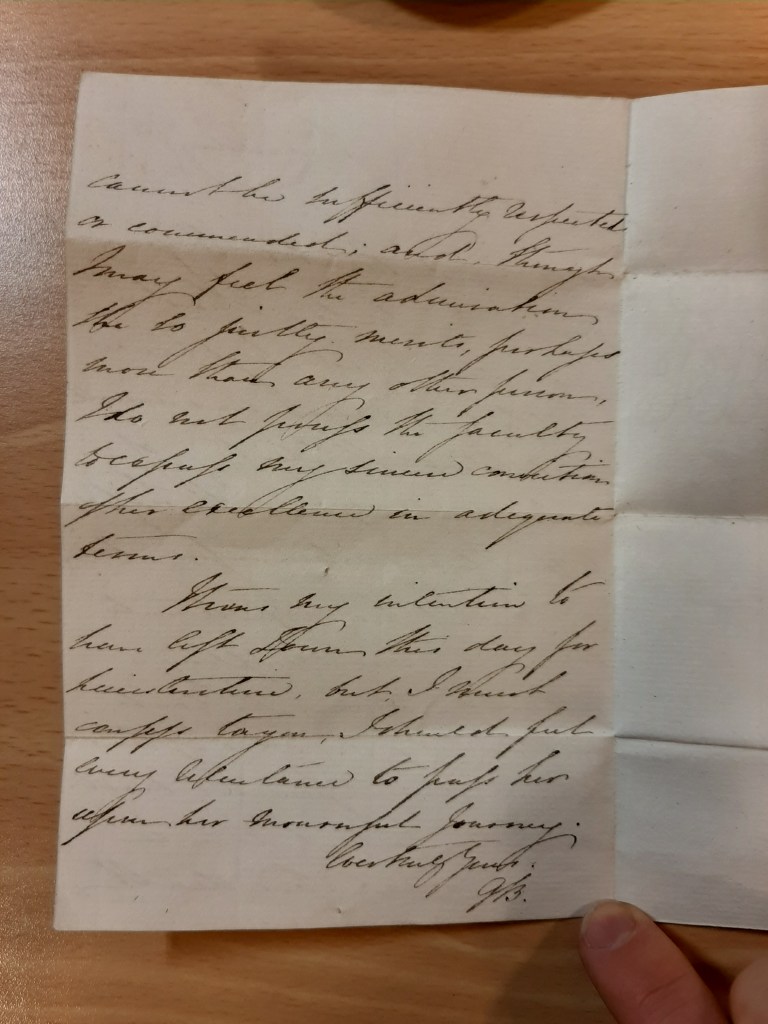 cannot be sufficiently respected
or commended; and, though
I may feel the admiration
she so justly merits, perhaps
more than any other person,
I do not possess the faculty
to express my sincere conviction
of her excellence in adequate
terms.
It was my intention to
have left Town this day for
but, I must
confess to you, I should feel
every reluctance to pass her
upon her mournful journey.
Ever truly Yours.